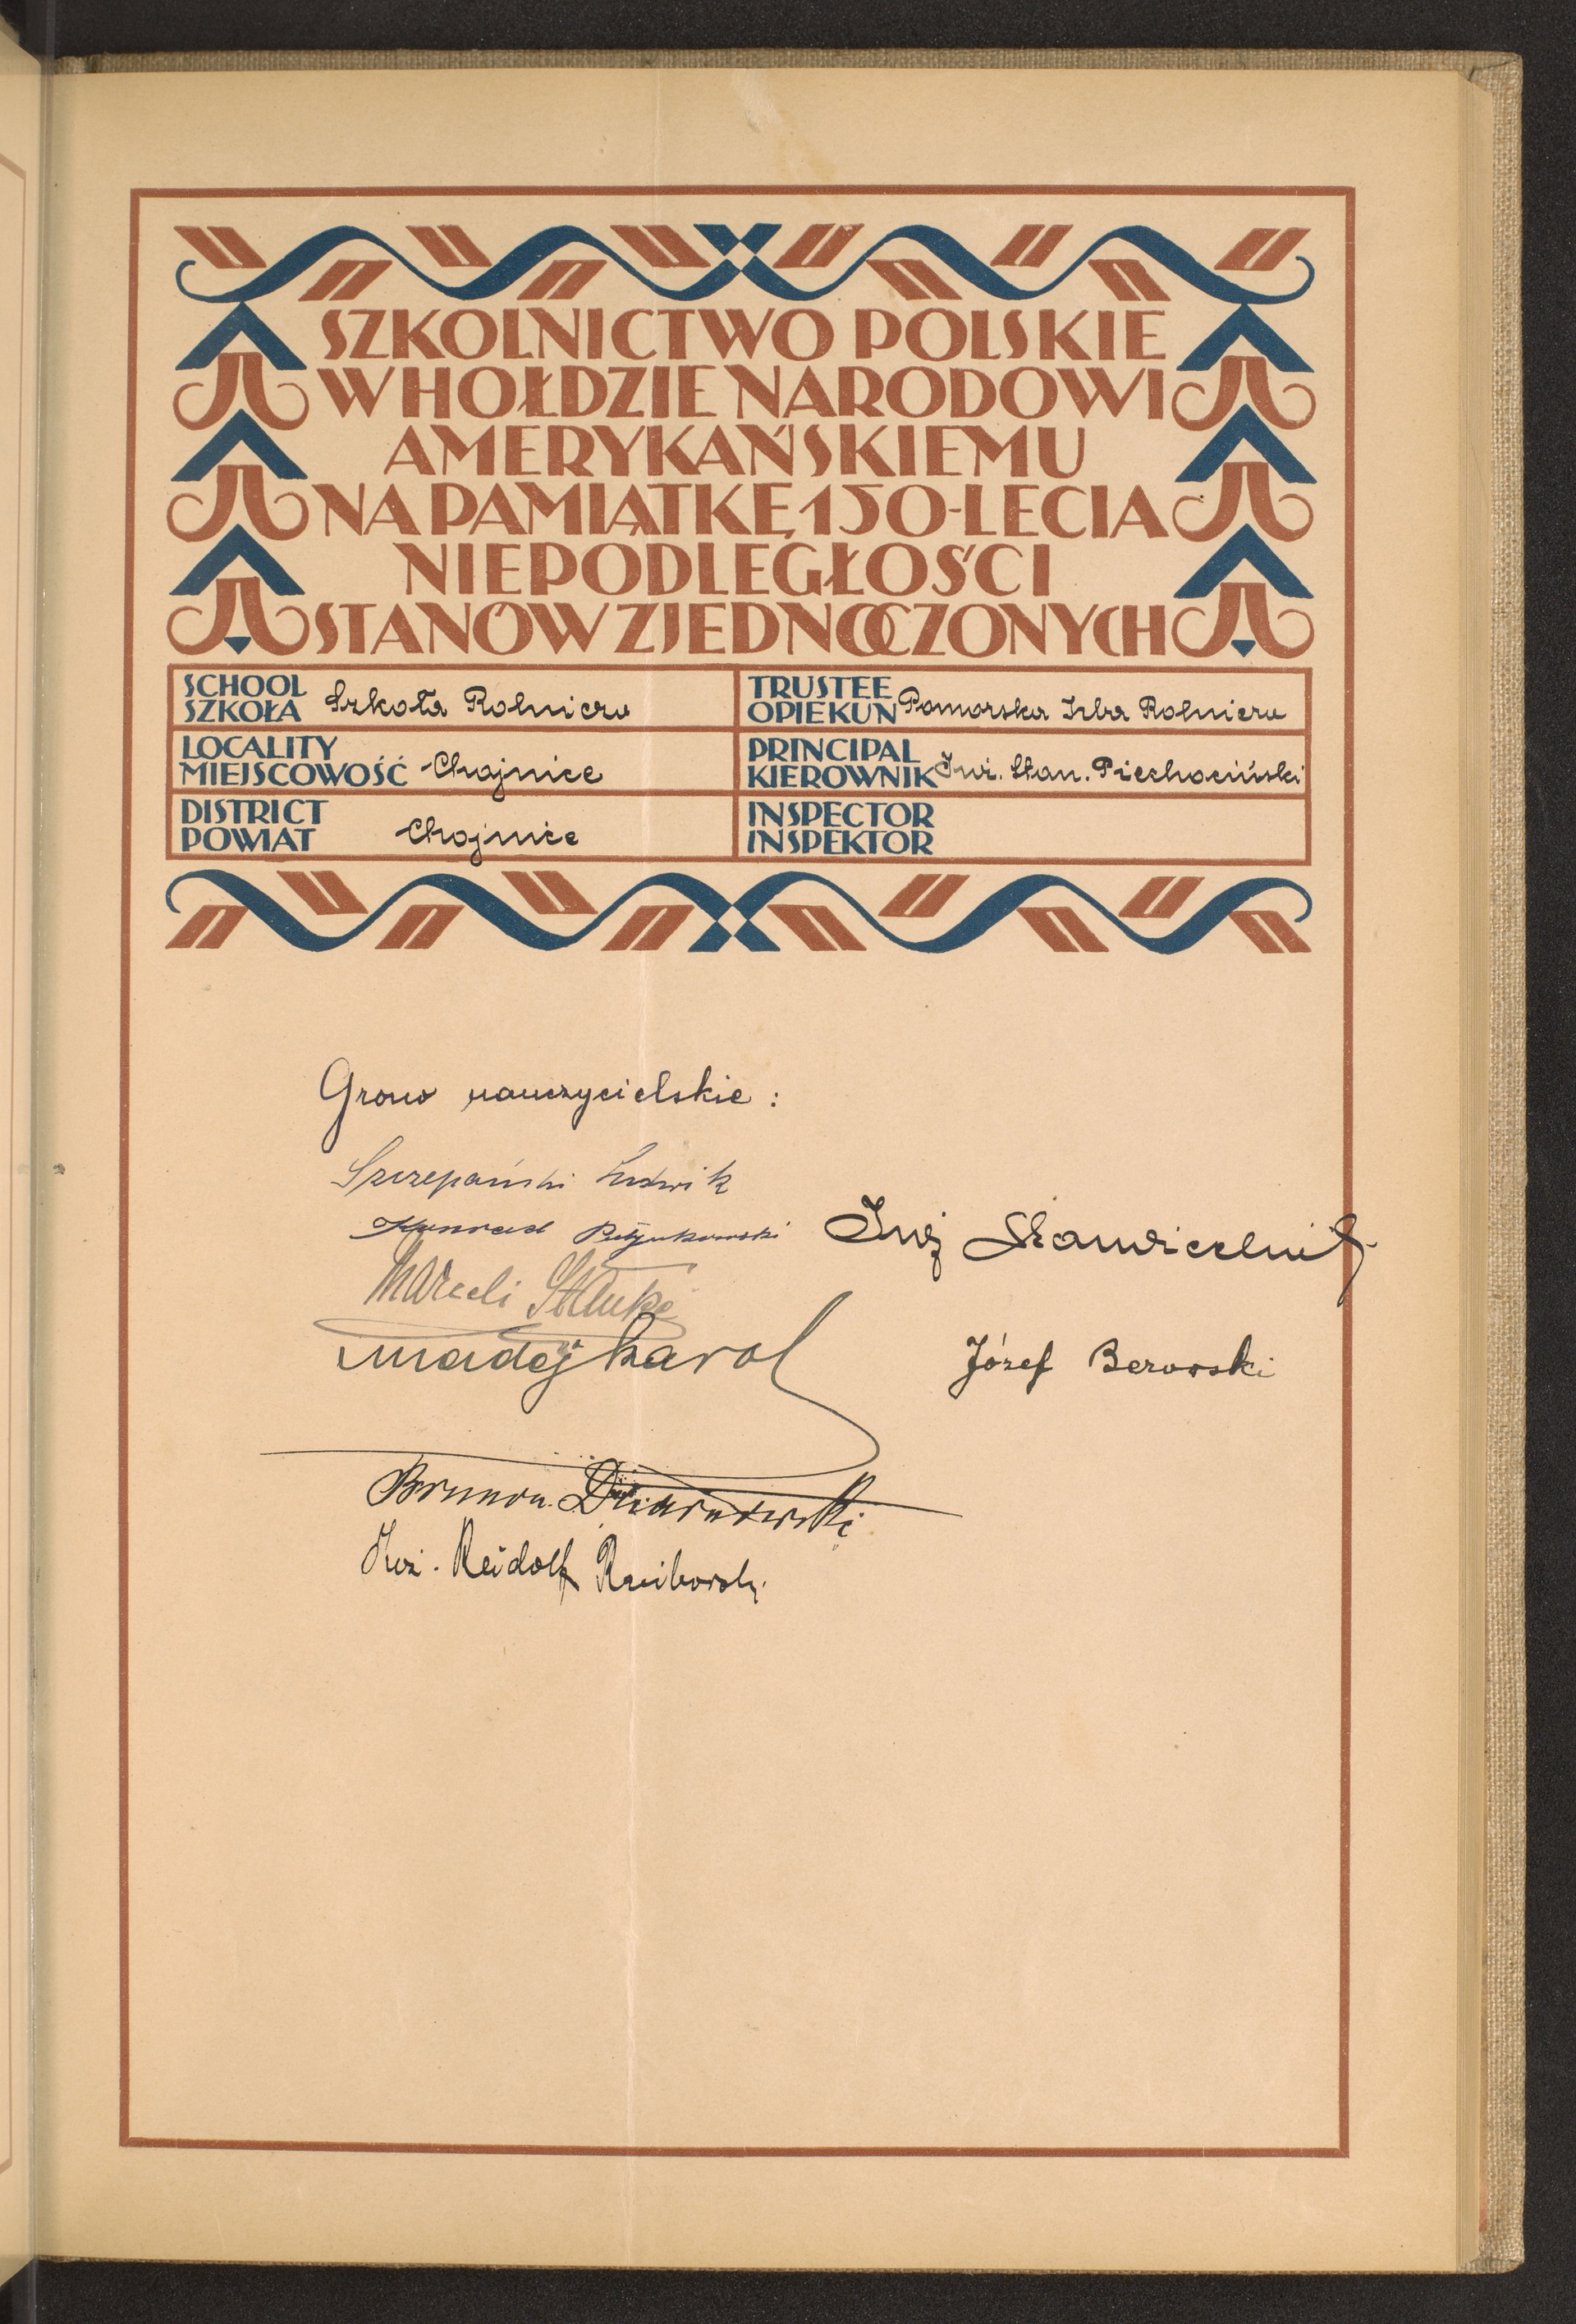 SZKOLNICTWO POLSKIE
W HOŁDZIE NARODOWI
AMERYKAŃSKIEMU
NA PAMIĄTKĘ 150-LECIA
NIEPODLEGŁOŚCI
STANÓW ZJEDNOCZONYCH
SCHOOL
SZKOŁA Szkoła Rolnicza
TRUSTEE
OPIEKUN Pomorska Izba Rolnicza
LOCALITY
MIEJSCOWOŚĆ Chojnice
PRINCIPAL
KIEROWNIK Inż. Stan. Piechociński
DISTRICT
POWIAT Chojnice
INSPECTOR
INSPEKTOR
Grono nauczycielskie:
Szczepański Ludwik
Konrad
Inż
Marceli
Madej Karol
Józef Berowski
Brunon
Inż. Raciborski